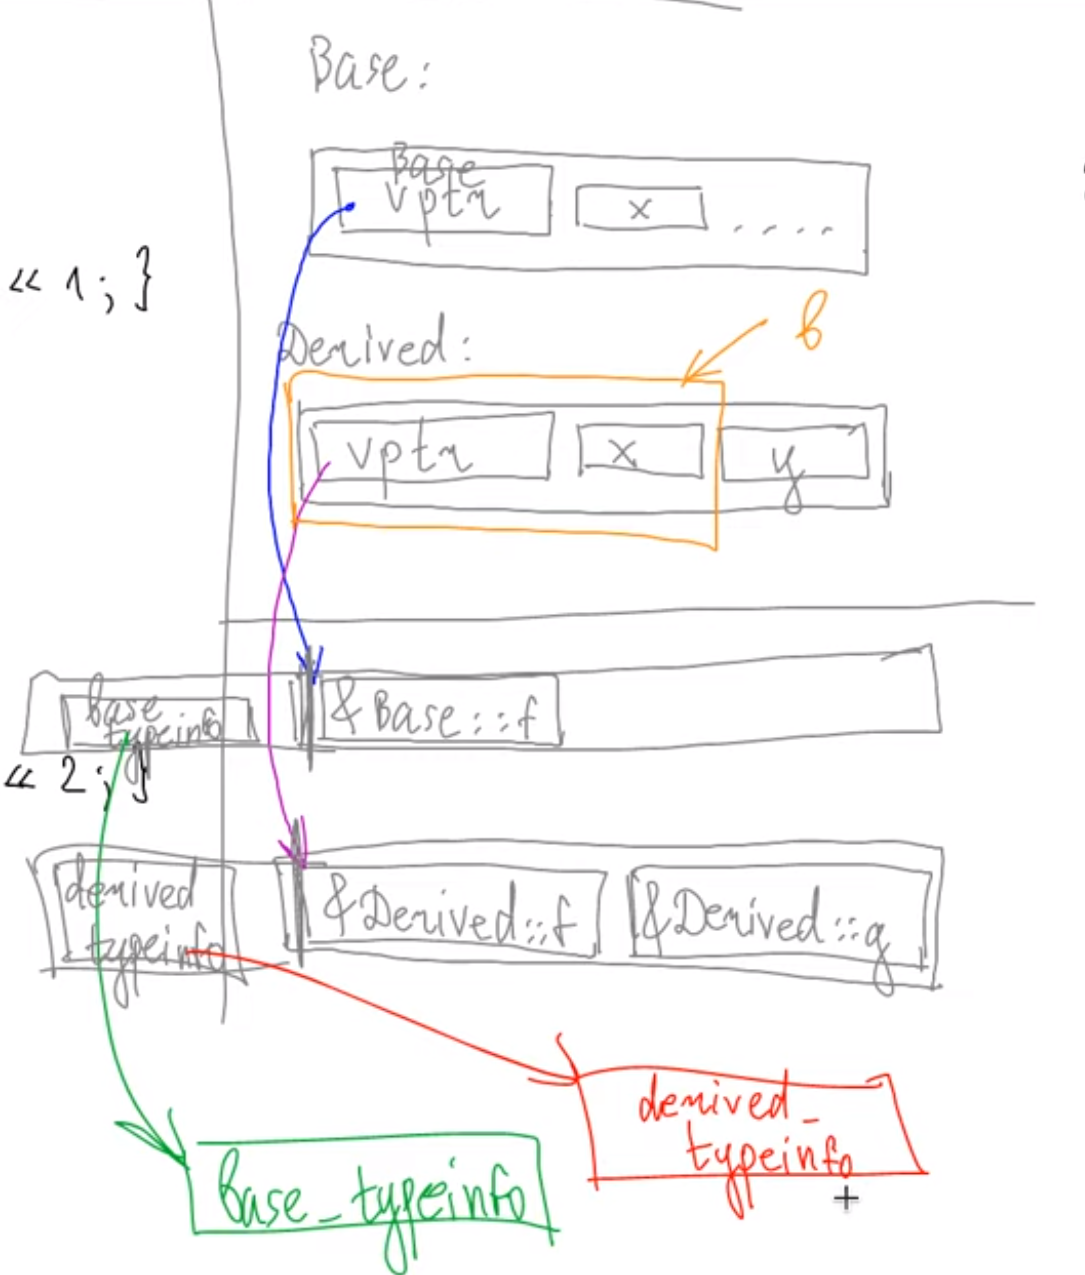 Base:
Base
vptr
x
.....
<< 1; }
b
Derived:
vptr
x
y
base
typeinfo
&Base::f
<< 2; }
derived
typeinfo
&Derived::f
&Derived::g
derived_
typeinfo
base_typeinfo